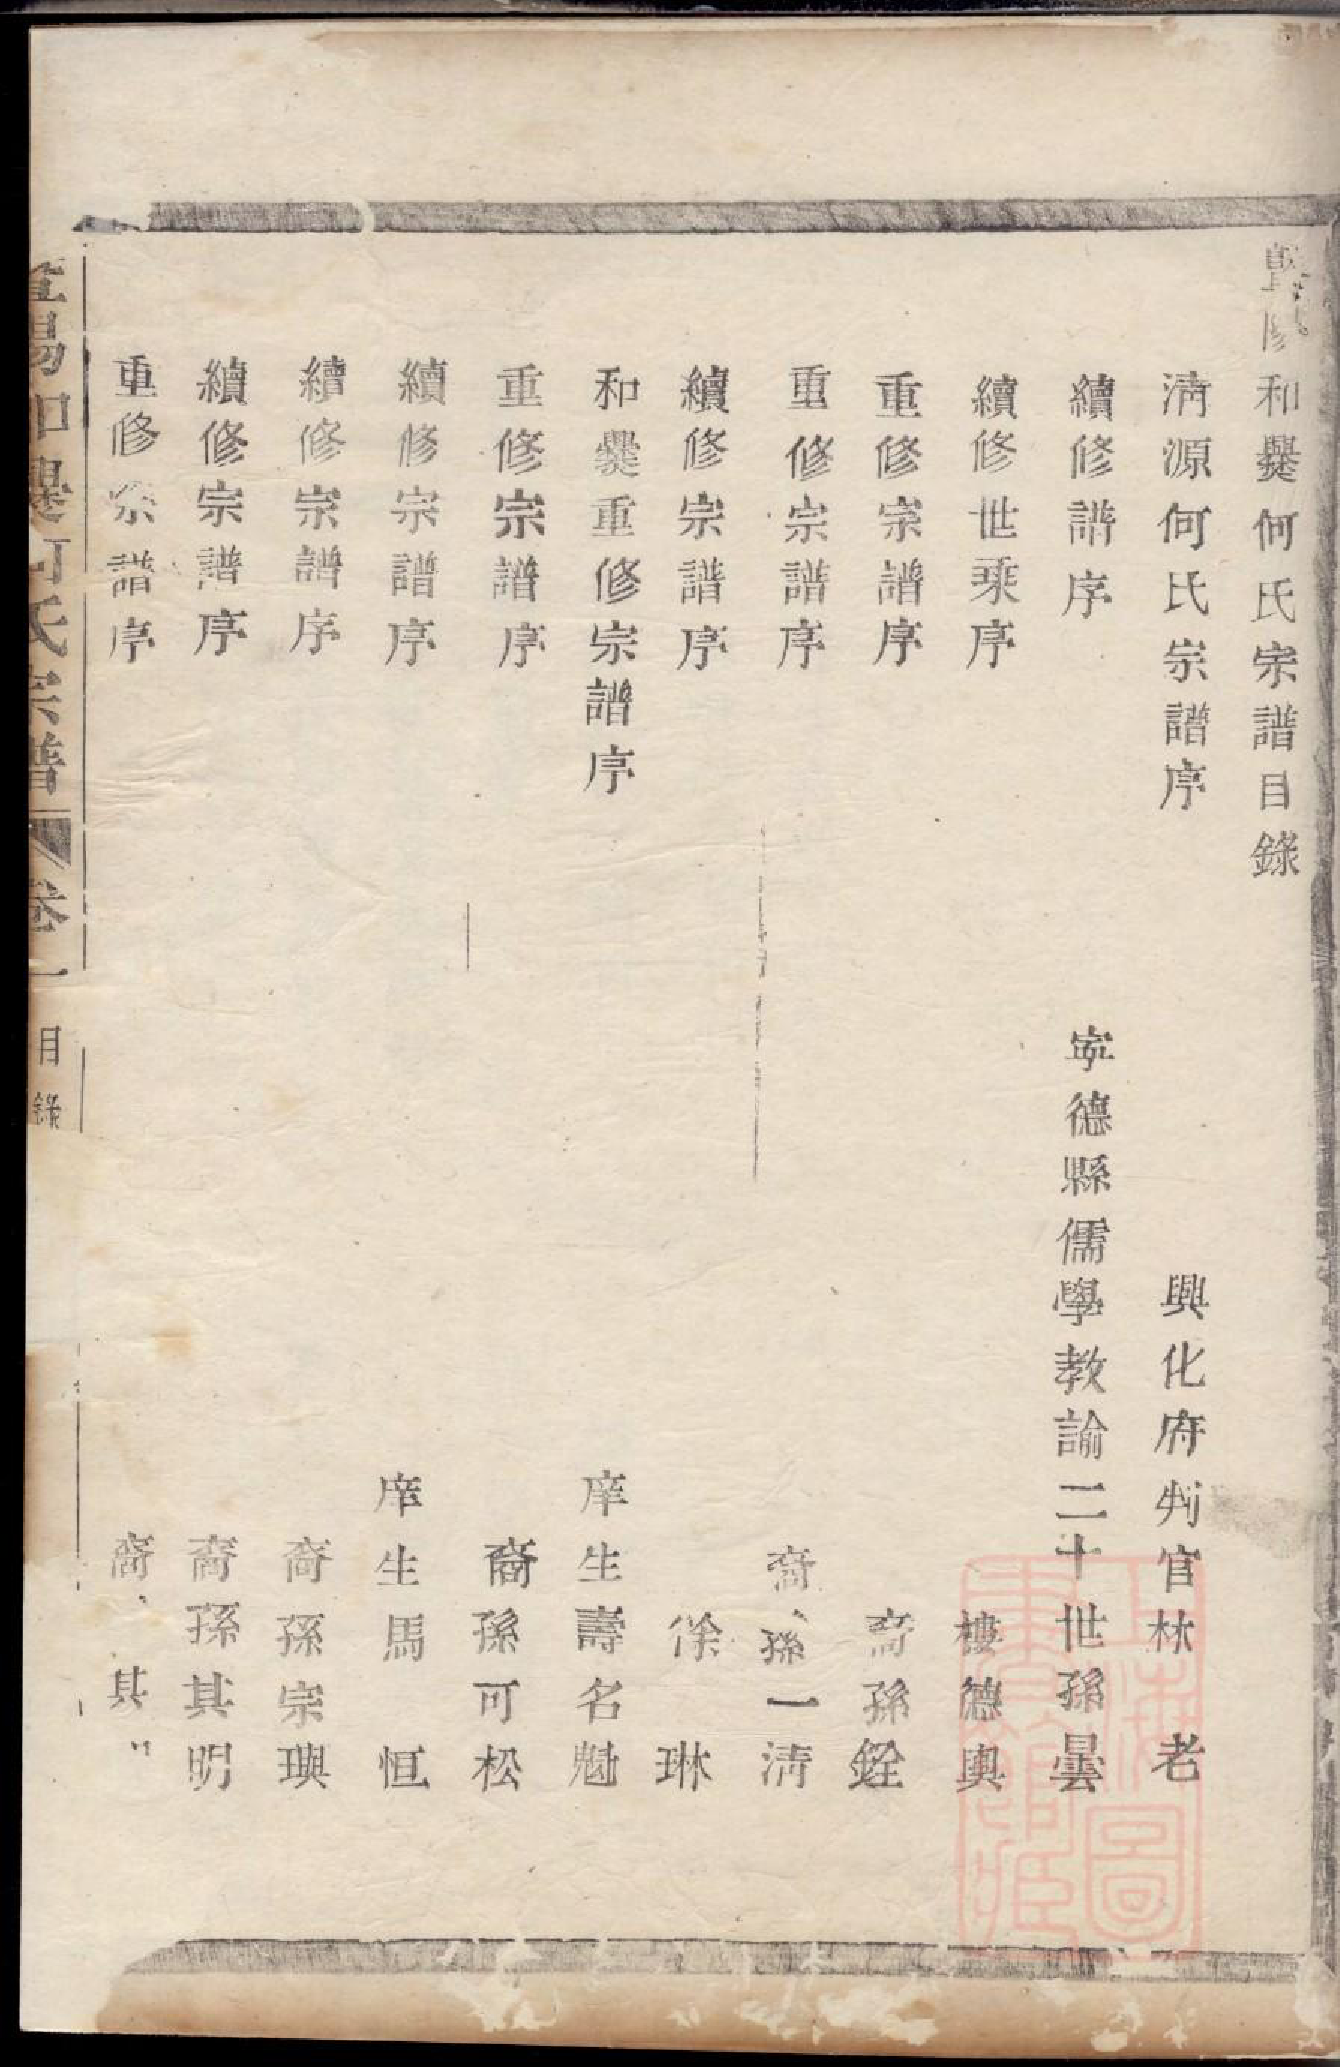 暨陽和爨何氏宗譜目錄
淸源何氏宗譜序 興化府判官林老
續修譜序 寧德縣儒學教諭二十世孫曇
續修世乘序 樓德輿
重修宗譜序 裔孫銓
重修宗譜序 裔孫一淸
續修宗譜序 徐琳
和爨重修宗譜序 庠生壽名魁
重修宗譜序 裔孫可松
續修宗譜序 庠生馬恒
續修宗譜序 裔孫宗璵
續修宗譜序 裔孫其明
重修宗譜序 裔 其
暨陽和爨何氏宗譜 卷一 目錄
上海圖書館藏